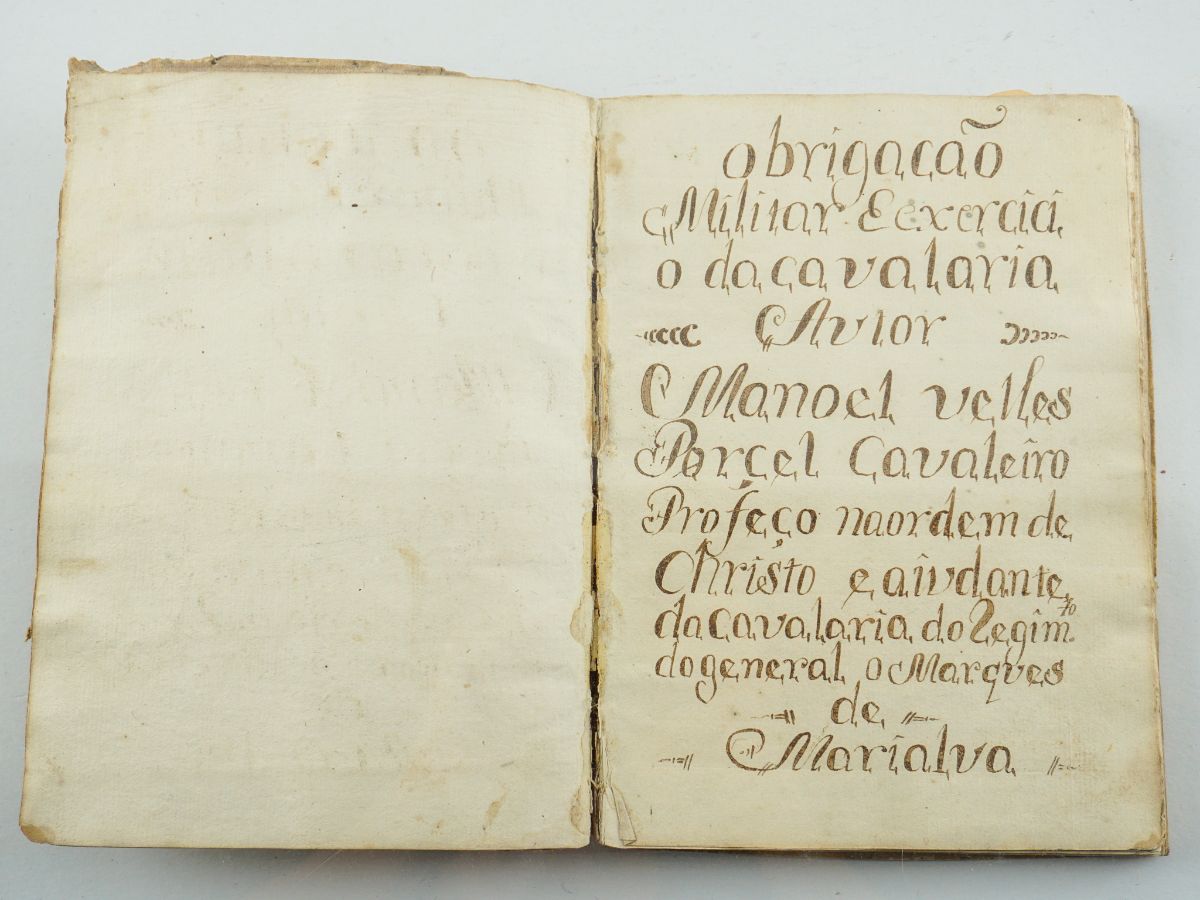 obrigação
Militar Eexercici
o dacavalaria
Avtor
Manoel velles
Porcel Cavaleiro
Profeço naordem de
Christo e aivdante
dacavalaria do Regim.to
dogeneral o Marqves
de
Marialva